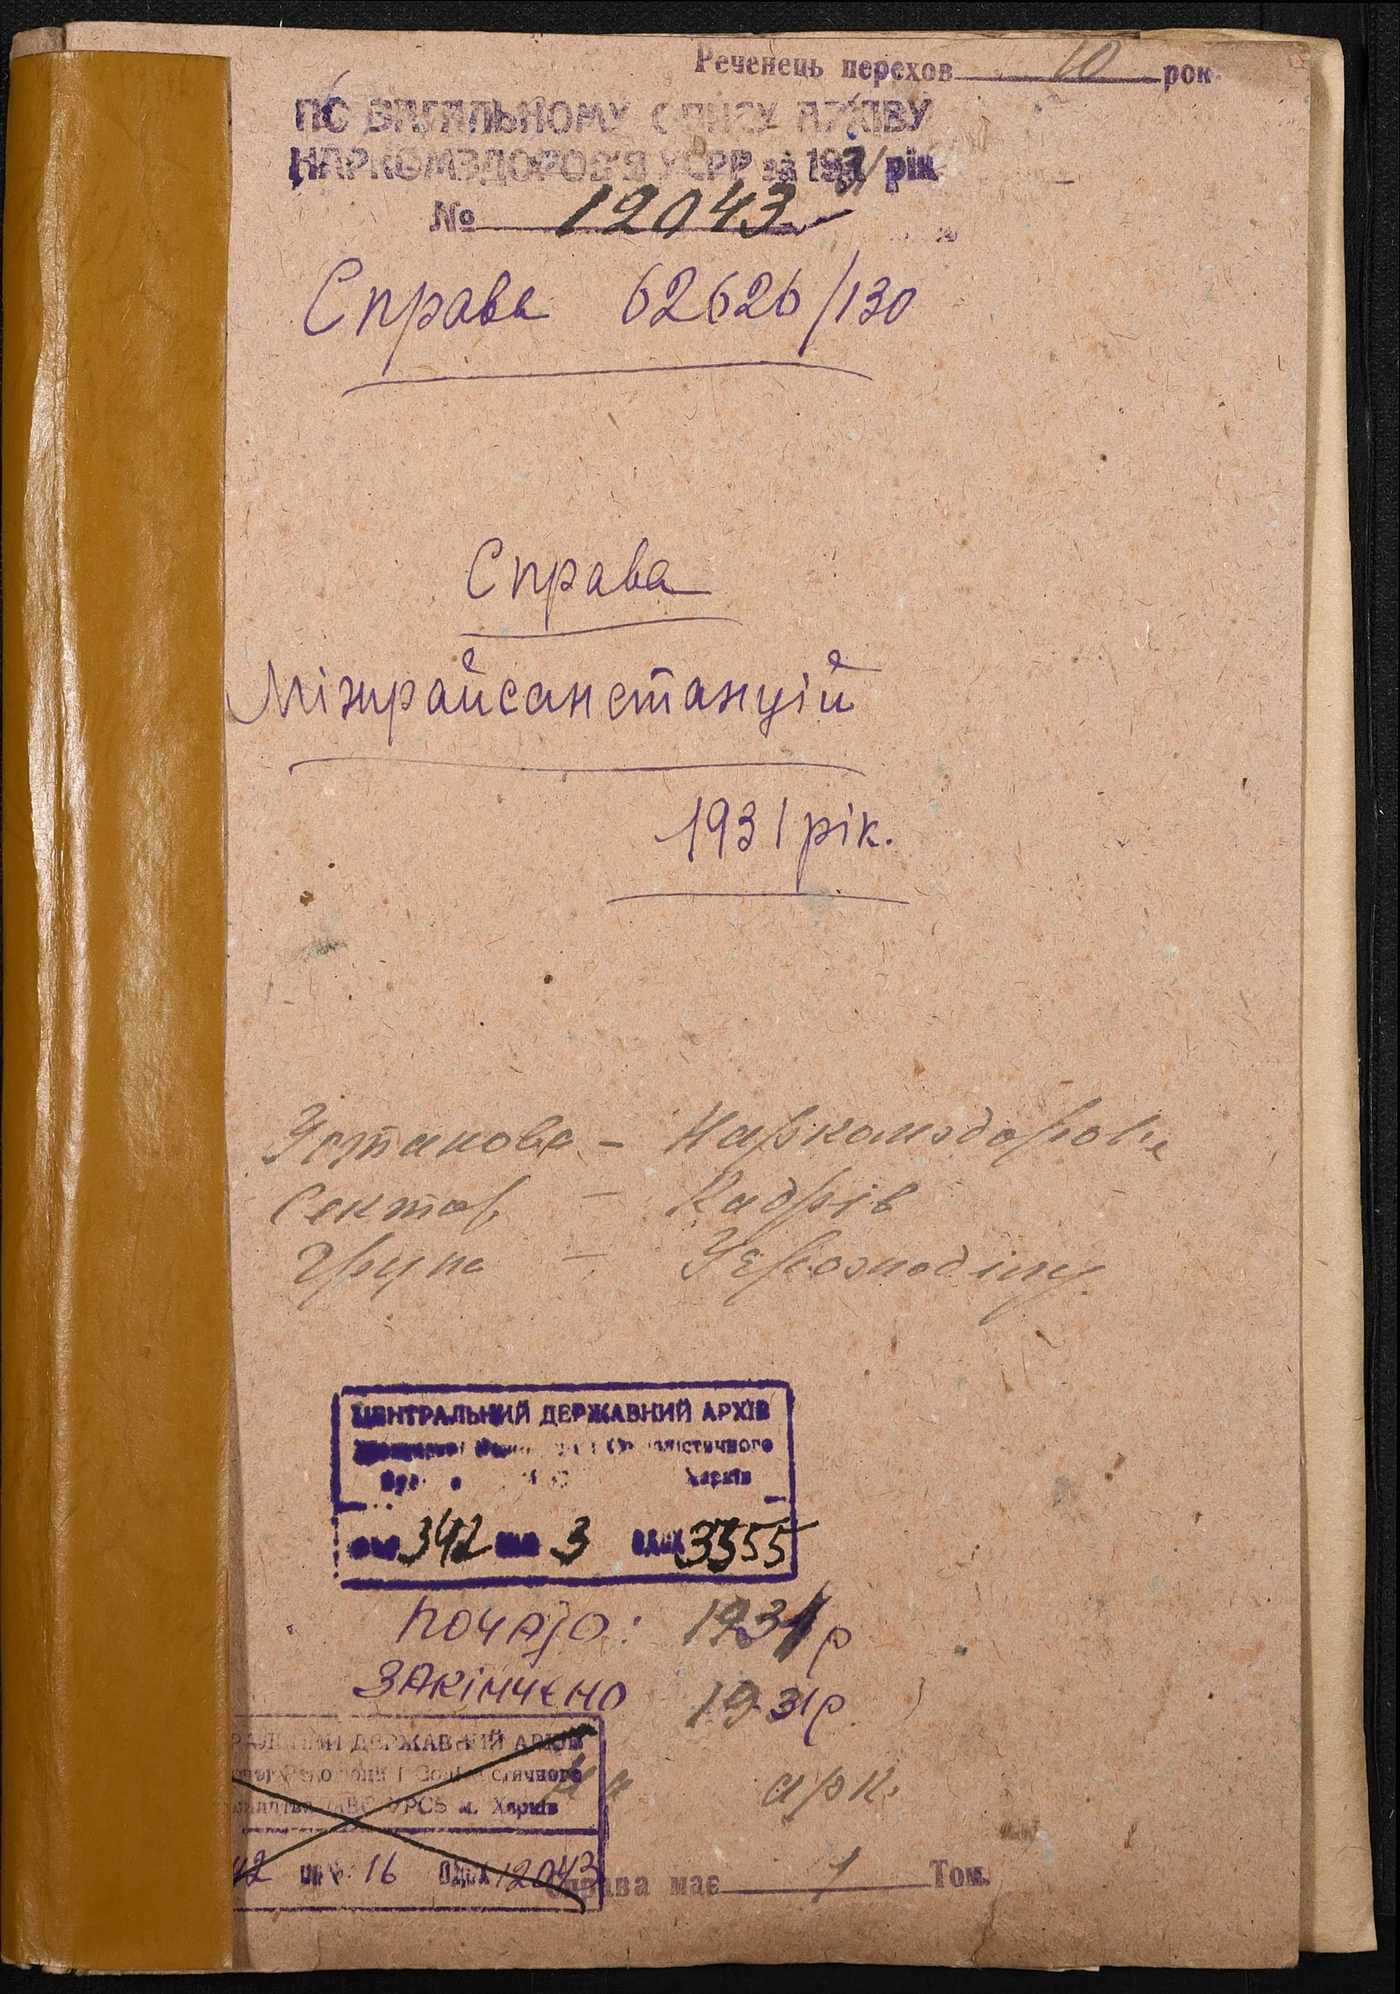 Реченець перехов 10 рок.
ПО ЗАГАЛЬНОМУ СПИСУ АРХІВУ
НАРКОМЗДОРОВ'Я УСРР за 1931 рік
№ 12043
Справа 62626/130
Справа
Міжрайсанстанцій
1931 рік.
Установа – Наркомздоров'я
Сектор – Кадрів
Група –
ЦЕНТРАЛЬНИЙ ДЕРЖАВНИЙ АРХІВ
Харків
342 3 од.зх 3355
Почато: 1931 р
Закінчено 1931 р
арк.
РАЛЬНИЙ ДЕРЖАВНИЙ АРХІВ
УРСР м. Харків
42 16 Од.зх 12043
Справа має 1 Том.